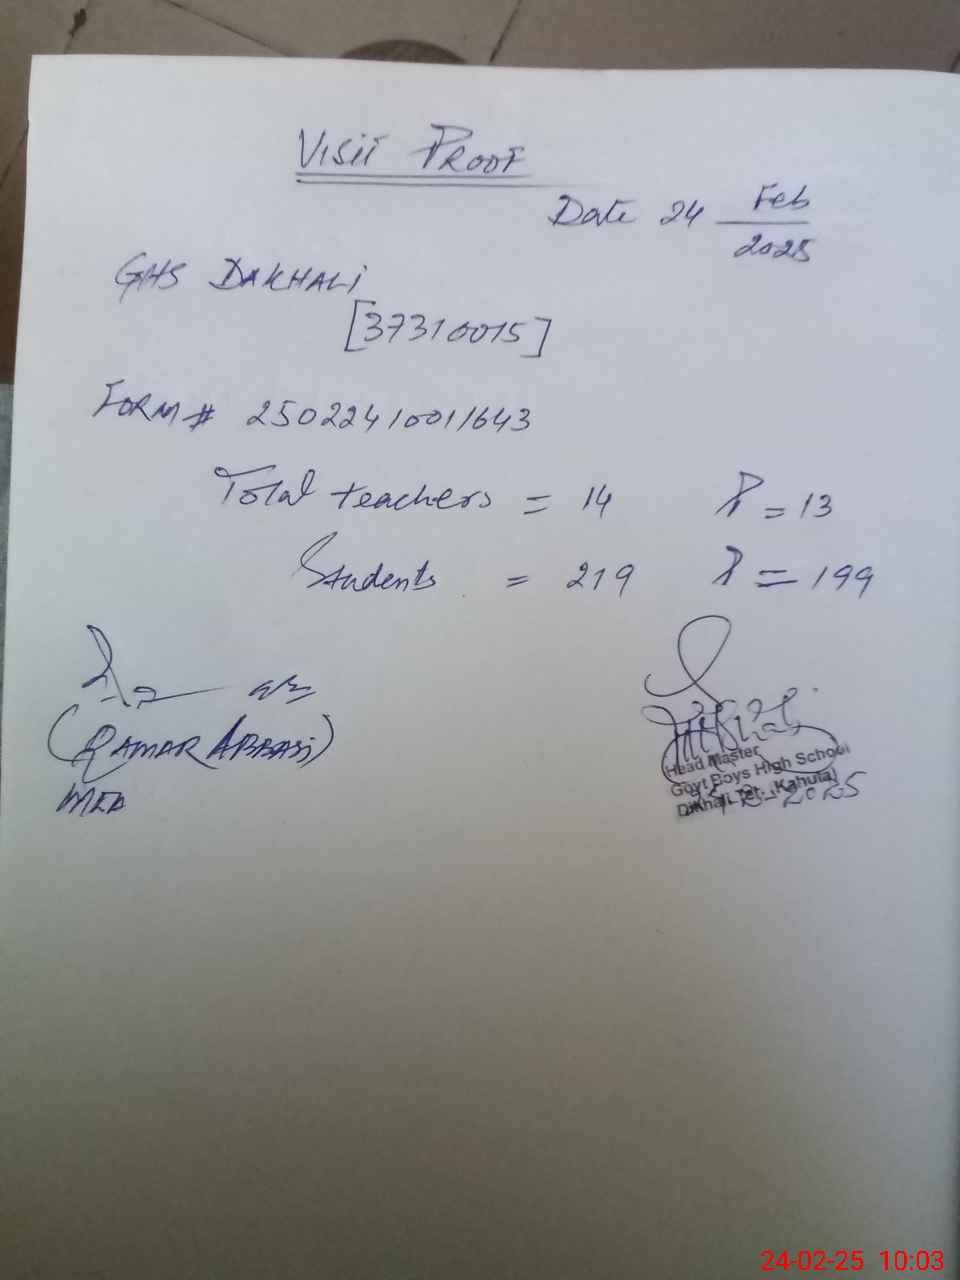 VISIT PROOF
Date 24 Feb
2025
GHS DAKHALI
[37310015]
FORM # 25022410011643
Total teachers = 14 P = 13
Students = 219 P = 199
(QAMAR ABBASI)
MEA
Head Master
Govt Boys High School
Dikhali Teh. Kahuta
2025
24-02-25 10:03